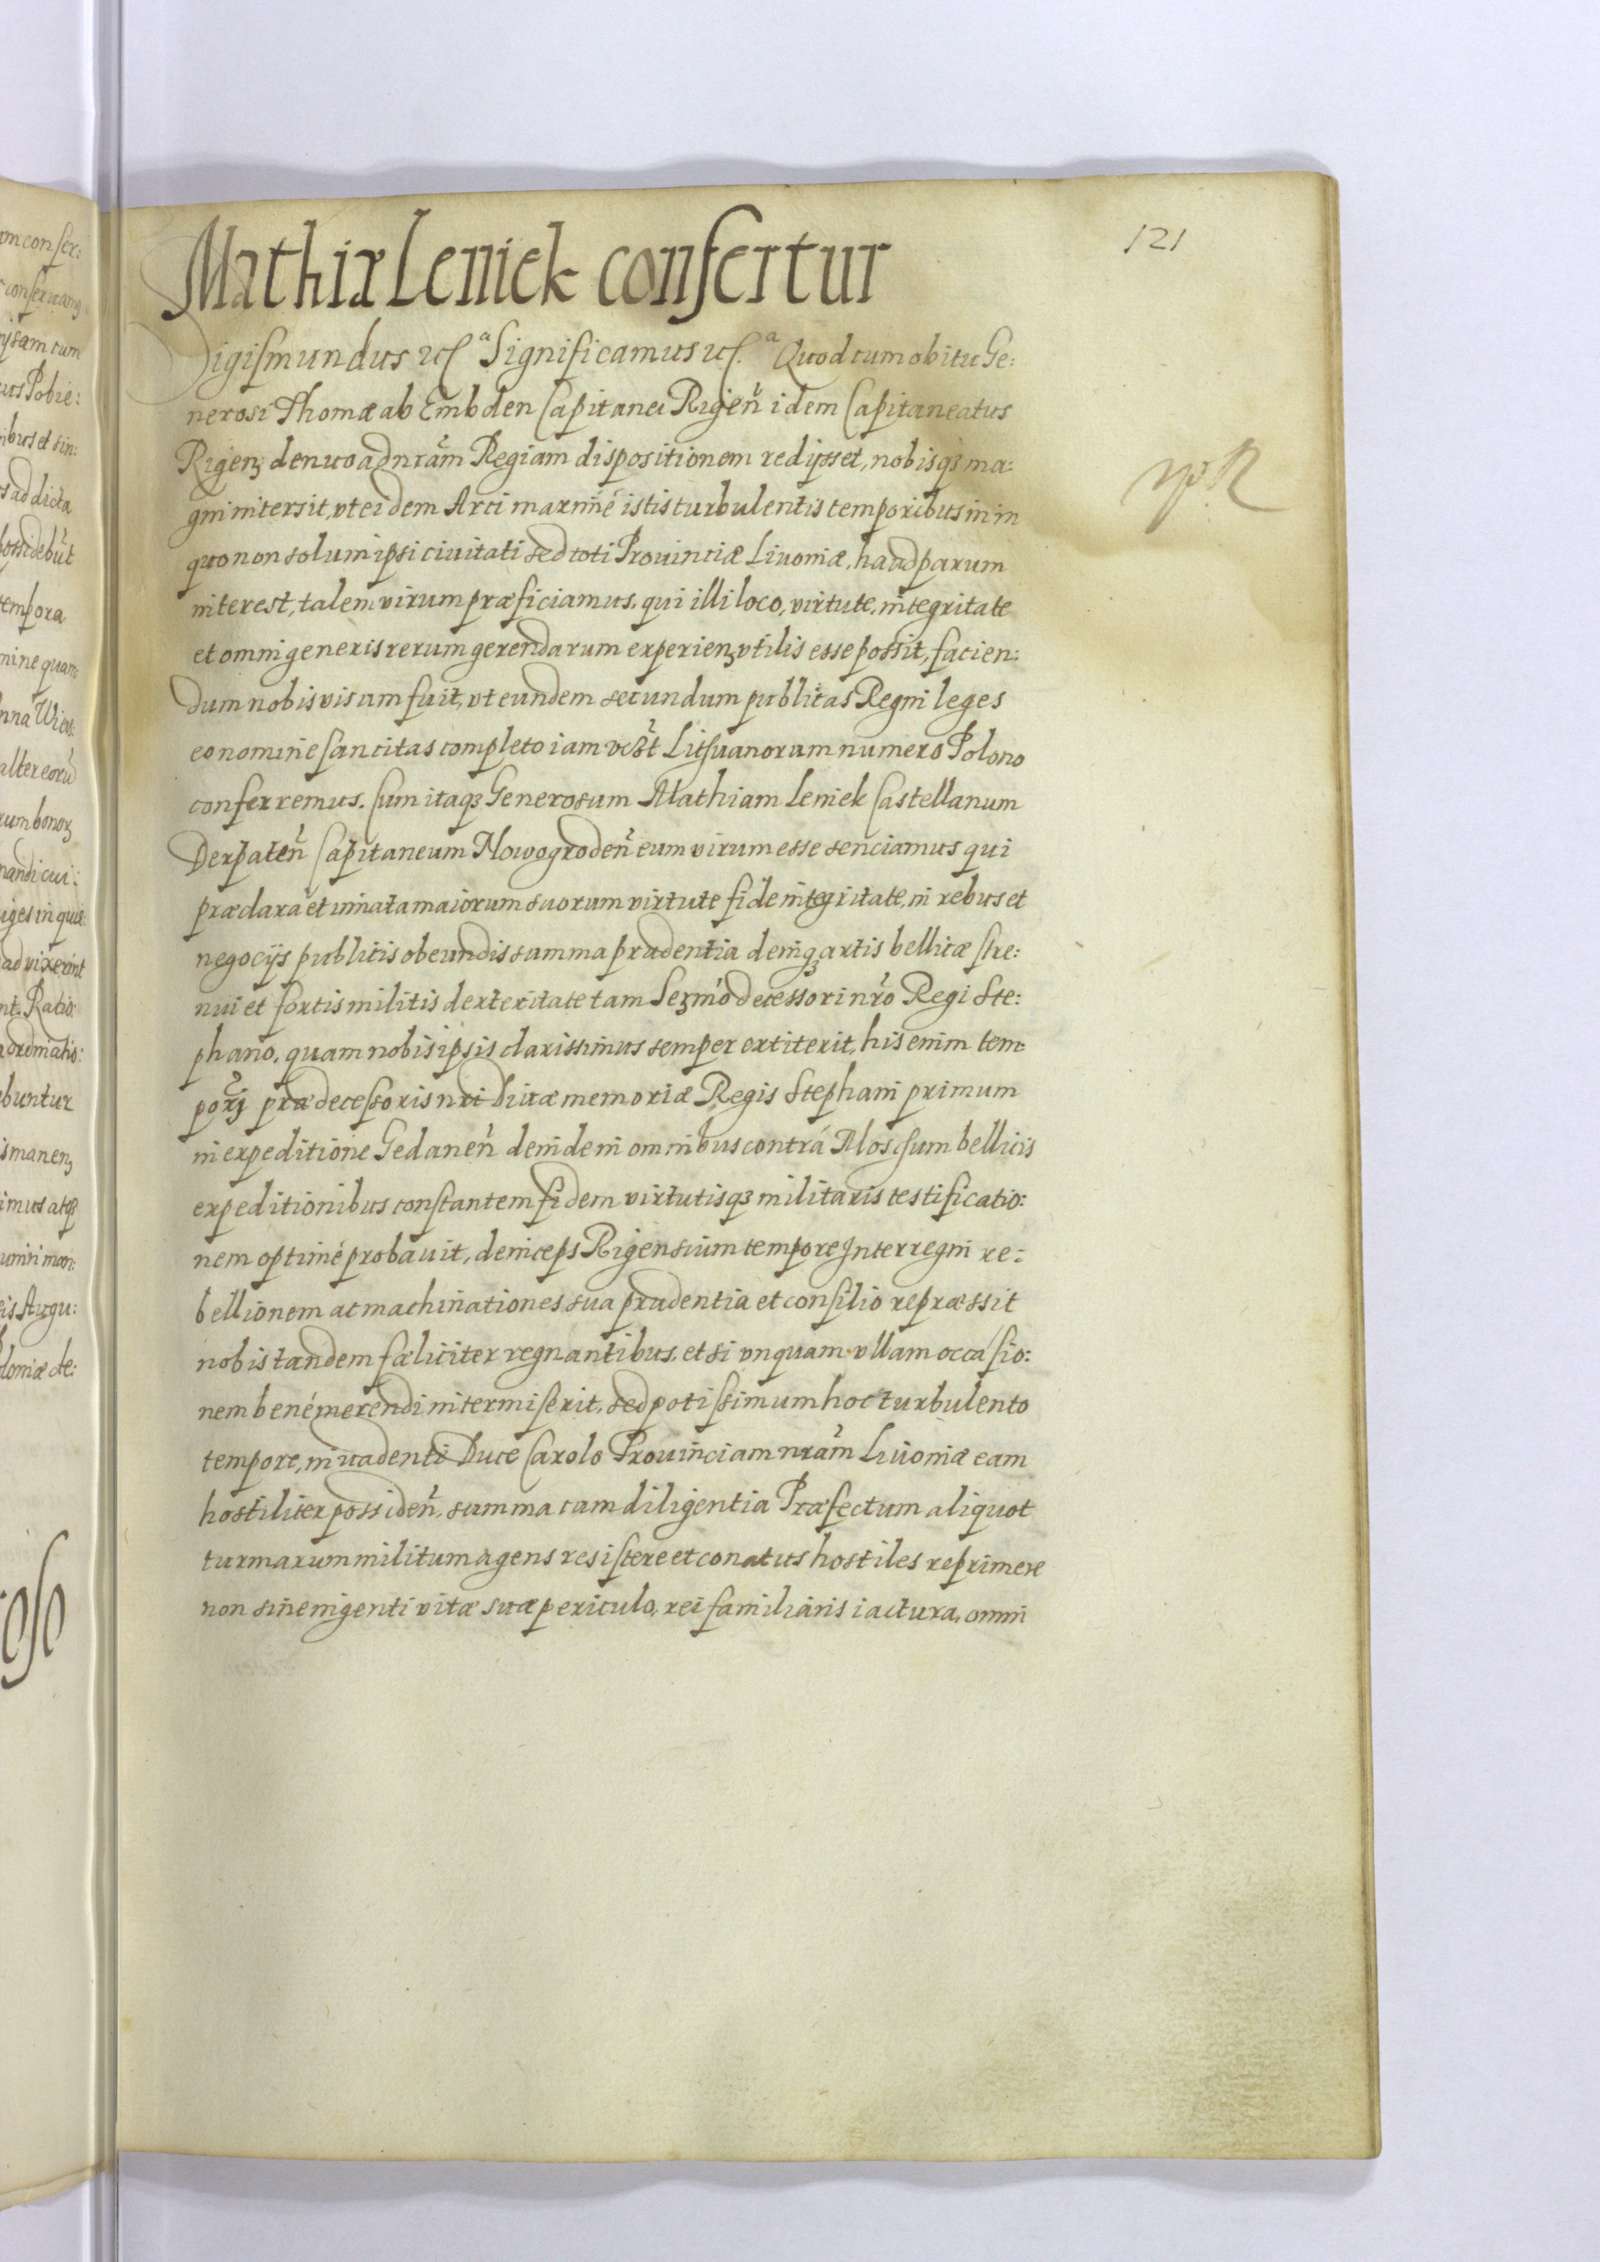 121
Mathiæ Leniek confertur
Sigismundus etc.a Significamus etc.a Quod cum obitu Ge:
nerosi Thomæ ab Embden Capitanei Rigeñ idem Capitaneatus
Rigenʒ denuo ad nrãm Regiam dispositionem redijsset, nobisqʒ ma:
gni intersit, vt eidem Arci maximé istis turbulentis temporibus in in
quo non solum ipsi ciuitati sed toti Prouinciæ Liuoniæ, haud parum
interest, talem virum præficiamus, qui illi loco, virtute, integritate
et omnigeneris rerum gerendarum experienʒ vtilis esse possit, facien:
dum nobis visum fuit, vt eundem secundum publicas Regni leges
eo nomine sancitas completo iam Lithuanorum numero Polono
conferremus. Cum itaqʒ Generosum Mathiam Leniek Castellanum
Derpateñ Capitaneum Nowogrodeñ eum virum esse senciamus qui
præclara et innata maiorum suorum virtute fide integritate, in rebus et
negocijs publicis obeundis summa prudentia deniqʒ artis bellicæ stre:
nui et fortis militis dexteritate tam Serʒmo decessori nrõ Regi Ste:
phano, quam nobis ipsis clarissimus semper extiterit, his enim tem:
porʒ prædecessoris nri Diuæ memoriæ Regis Stephani primum
in expeditione Gedaneñ deinde in omnibus contrá Moschum bellicis
expeditionibus constantem fidem virtutisqʒ militaris testificatio:
nem optimé probauit, deinceps Rigensium tempore Interregni re:
bellionem ac machinationes sua prudentia et consilio repræssit
nobis tandem fæliciter regnantibus, et si vnquam vllam occasio:
nem bené merendi intermiserit, sed potissimum hoc turbulento
tempore, inuadenti Duce Carolo Prouinciam nrãm Liuoniæ eam
hostiliter possideñ, summa cum diligentia Præfectum aliquot
turmarum militum agens resistere et conatus hostiles reprimere
non sine ingenti vitæ suæ periculo, rei familiaris iactura, omni